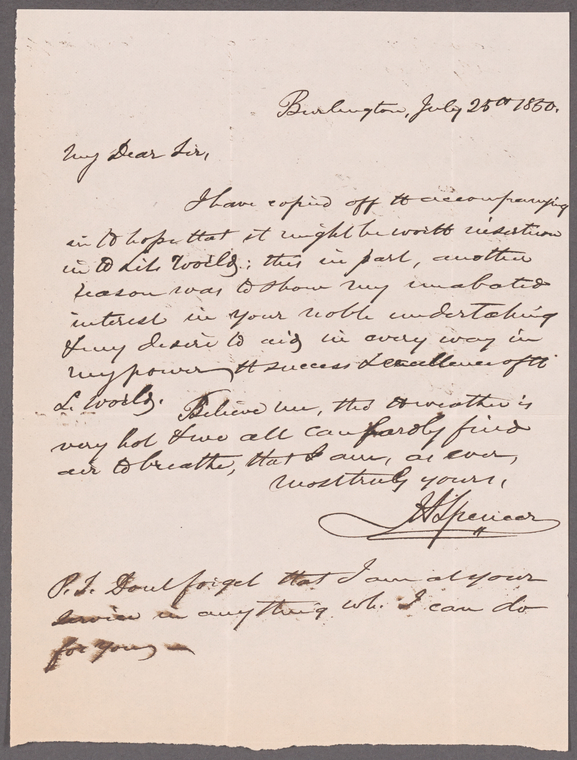 Burlington, July 25th 1850.
My Dear Sir,
I have copied off th accompanying
in th hope that it might be worth insertion
in th Lit. World; this in part, another
reason was to show my unabated
interest in your noble undertaking
& my desire to aid in every way in
my power th success & excellence of th
L. World.
Believe me, tho th weather is
very hot & we all can hardly find
air to breathe, that I am, as ever,
most truly yours,
JASpencer
P.S. Dont forget that I am at your
service in anything wh. I can do
for you